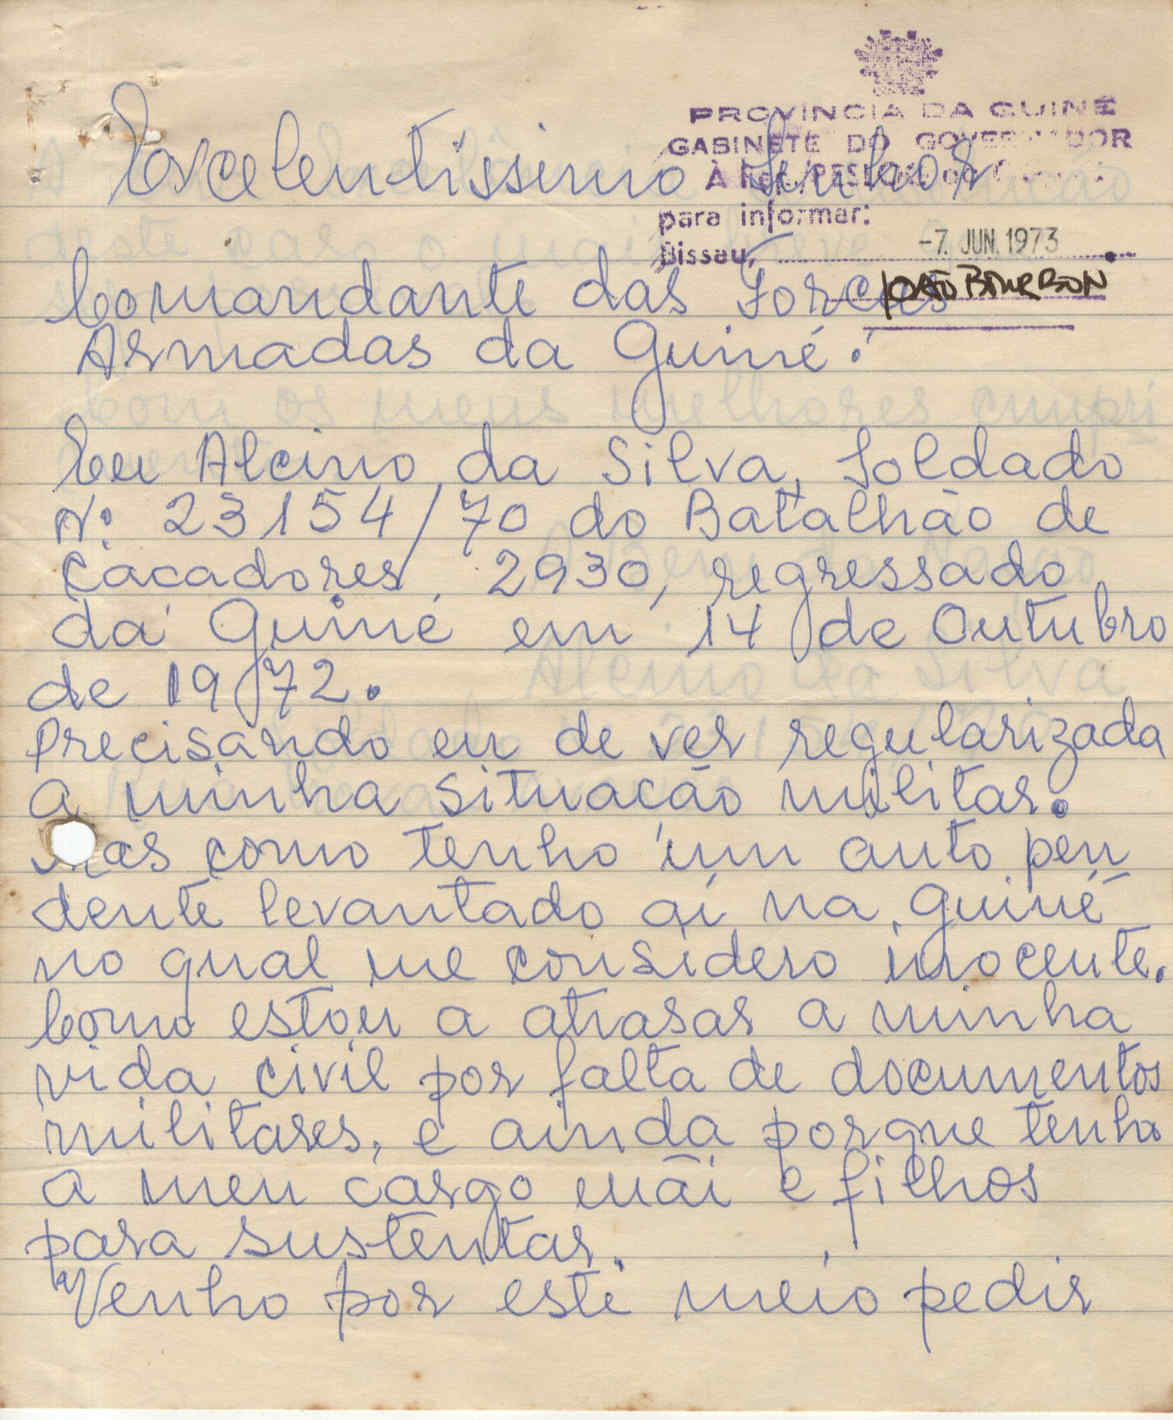 PROVINCIA DA GUINÉ
GABINETE DO GOVERNADOR
À
para informar:
Bissau, -7. JUN. 1973
JOÃO BOURBON
Excelentíssimo Senhor
Comandante das Forces
Armadas da Guiné.
Eu Alcino da Silva, Soldado
Nº 23154/70 do Batalhão de
Cacadores, 2930, regressado
da Guiné em 14 de Outubro
de 1972.
Precisando eu de ver regularizada
a minha situação militar.
Mas como tenho um auto pen
dente levantado aí na Guiné
no qual me considero inocente.
Como estou a atrasar a minha
vida civil por falta de documentos
militares, e ainda porque tenho
a meu cargo mãi e filhos
para sustentar.
Venho por este meio pedir